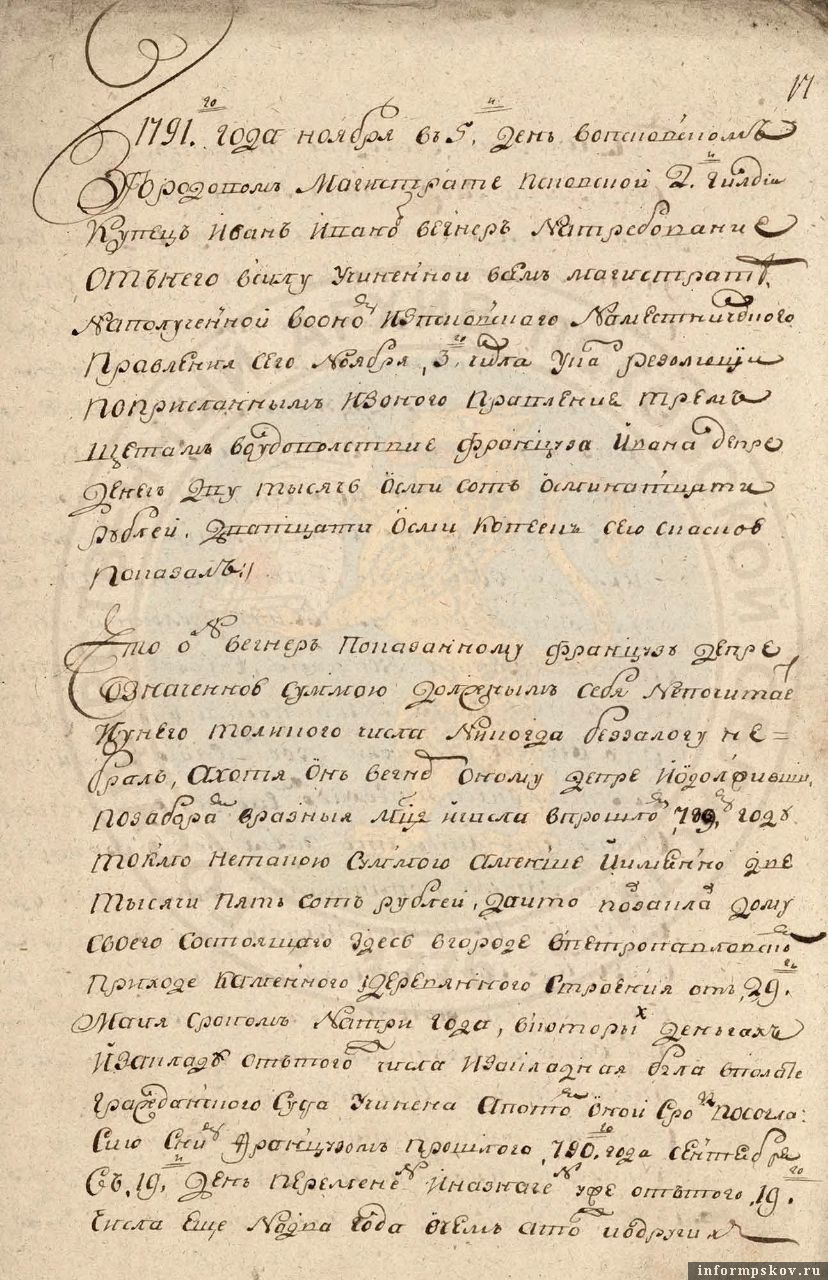 17
1791го года ноября въ 5й день вопсковскомъ
городовомъ Магистрате псковской 2й гилдiи
Купецъ Иванъ Иванов вегнеръ Натребование
отънего всилу учиненной всемъ магистрате
Наполученной вооном изпсковского Наместнического
Правления сего Ноября 3го числа указ резолюции
поприсланнымъ изоного правление тремъ
щетамъ вудоволствие француза Ивана депре
денегъ двутысячь осми сотъ осминатцати
рублей, дватцати осми копеек сею сказков
показалъ//
Что он вегнеръ показанному французу депре
означенною суммою должнымъ себя непочитает
Иунего толикого числа Никогда беззалогу не=
бралъ, Ахотя онъ вегнер оному депре Иодолживши
позабором вразныя мцы ичисла впрошлом 789м году
токмо нетакою суммою аменше Иимянно две
тысячи пять сотъ рублей, дапто подзаклад дому
своего состоящаго здесь вгороде впетропавловском
приходе каменного идеревянного строения отъ 29го
Маия сроком Натри года, вкоторых деньгахъ
Изакладе отътого числа Изакладная была вполате
гражданского суда учинена апотом оной срок посогла:
сию сним французом прошлого 790го года сентебре
съ 19й день переменен Иназначен уже отътого 19го
числа еще Надва года очем атом иодругихъ
informpskov.ru